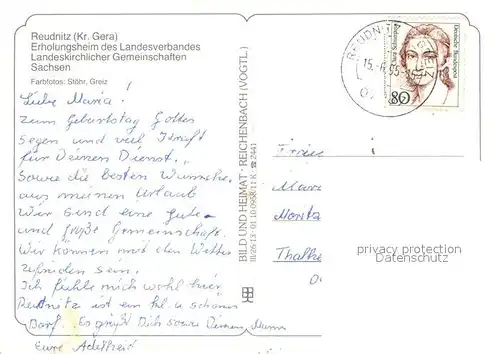 Reudnitz (Kr. Gera)
Erholungsheim des Landesverbandes
Landeskirchlicher Gemeinschaften
Sachsen
Farbfotos: Stöhr, Greiz
Liebe Maria!
Zum Geburtstag Gottes
Segen und viel Kraft
für Deinen Dienst,
Sowie die besten Wünsche
aus meinen Urlaub
Wir sind eine gute
und große Gemeinschaft.
Wir können mit den Wetter
zufrieden sein.
Ich fühle mich wohl hier
Reudnitz ist ein kl. u schönes
Dorf. Es grüßt Dich sowie Deinen Mann
Eure Adelheid
BILD UND HEIMAT · REICHENBACH (VOGTL.)
REUDNITZ
80
Deutsche Bundespost
Maria
Monika
privacy protection
Datenschutz